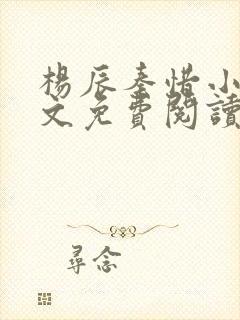 楊辰秦惜小
文免費閱讀
尋念